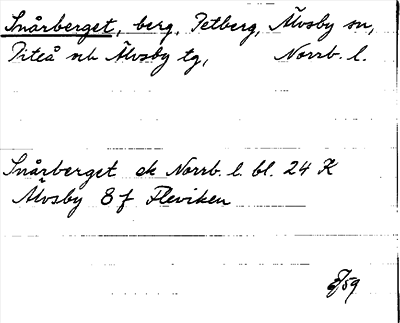 Snårberget, berg, Petberg, Älvsby sn,
Piteå och Älvsby tg, Norrb. l.
Snårberget ek Norrb. l. bl. 24 K
Älvsby 8 f Fleviken
/59